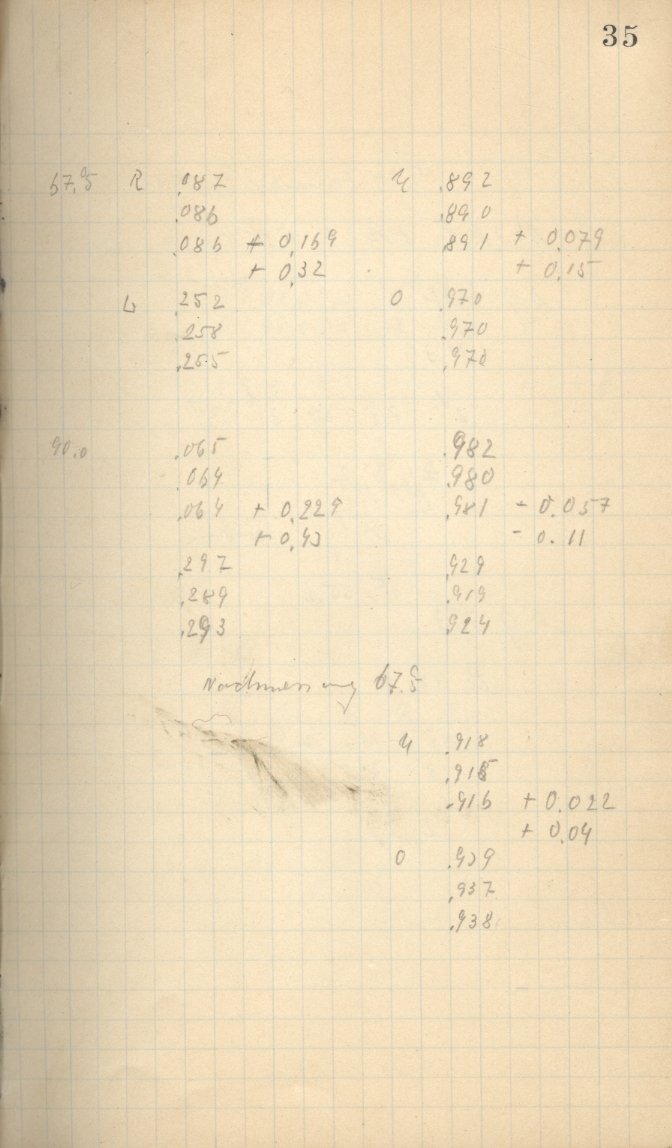 35
67.5 R .087 U .892
.086 .890
.086 + 0,169 .891 + 0.079
+ 0,32 + 0.15
L .252 O .970
.258 .970
.255 .970
90.0 .065 .982
.064 .980
.064 + 0,229 .981 - 0.057
+ 0,43 - 0.11
.297 .929
.289 .919
.293 924
Nachmessung 67.5
U .918
.915
.916 + 0.022
+ 0.04
O .939
.937
.938